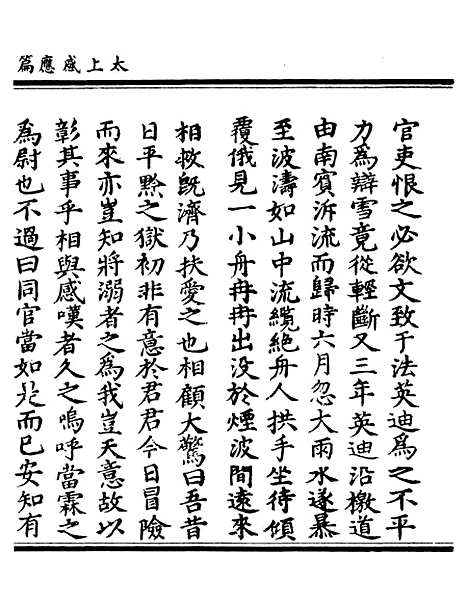 太上感應篇
官吏恨之必欲文致于法英迪為之不平
力為辯雪竟從輕斷又三年英迪沿檄道
由南賓泝流而歸時六月忽大雨水遂暴
至波濤如山中流纜絕舟人拱手坐待傾
覆俄見一小舟冉冉出没於煙波間遠來
相救旣濟乃扶愛之也相顧大驚曰吾昔
日平黥之獄初非有意於君君今日冒險
而來亦豈知將溺者之為我豈天意故以
彰其事乎相與感嘆者久之嗚呼當霖之
為尉也不過曰同官當如是而已安知有